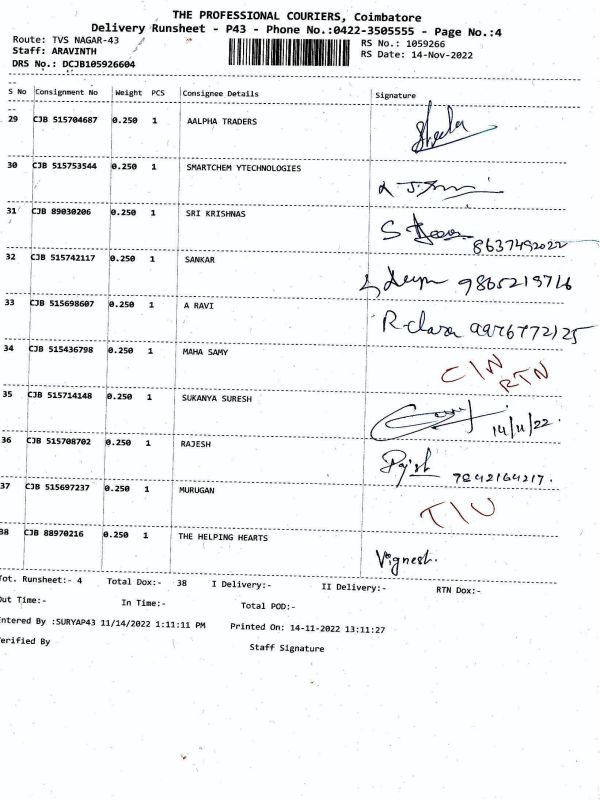 THE PROFESSIONAL COURIERS, Coimbatore
Delivery Runsheet - P43 - Phone No.:0422-3505555 - Page No.:4
Route: TVS NAGAR-43 RS No.: 1059266
Staff: ARAVINTH RS Date: 14-Nov-2022
DRS No.: DCJB105926604
S No Consignment No Weight PCS Consignee Details Signature
29 CJB 515704687 0.250 1 AALPHA TRADERS
30 CJB 515753544 0.250 1 SMARTCHEM YTECHNOLOGIES
31 CJB 89030206 0.250 1 SRI KRISHNAS S 8637492022
32 CJB 515742117 0.250 1 SANKAR 9865219716
33 CJB 515698607 0.250 1 A RAVI 9976772125
34 CJB 515436798 0.250 1 MAHA SAMY C/N
RTN
35 CJB 515714148 0.250 1 SUKANYA SURESH 14/11/22.
36 CJB 515708702 0.250 1 RAJESH 7842164217.
37 CJB 515697237 0.250 1 MURUGAN
38 CJB 88970216 0.250 1 THE HELPING HEARTS Vignesh.
Tot. Runsheet:- 4 Total Dox:- 38 I Delivery:- II Delivery:- RTN Dox:-
Out Time:- In Time:- Total POD:-
Entered By :SURYAP43 11/14/2022 1:11:11 PM Printed On: 14-11-2022 13:11:27
Verified By Staff Signature